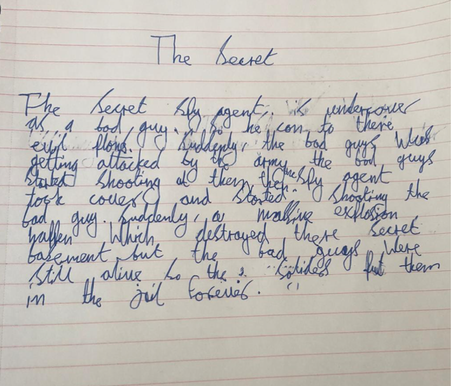 The Secret
The Secret spy agent, is undercover
as a bad guy. So he can to there
evil plans. Suddenly, the bad guys was
getting attacked by the army the bad guys
started shooting at them then the spy agent
took cover and started shooting the
bad guy. Suddenly, a massive explosion
happen which destroyed there secret
basement but the bad guys were
still alive so the soliders put them
in the jail forever.